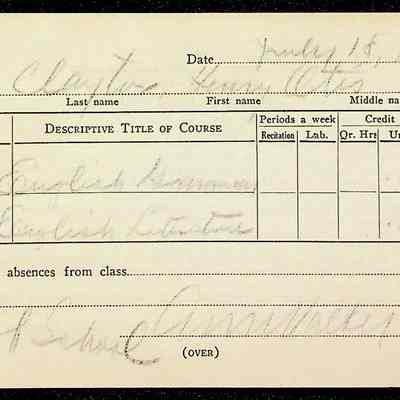 Date July 18,
Clayton Henry Otis
Last name First name Middle na
Descriptive Title of Course Periods a week Credit
Recitation Lab. Qr. Hrs Un
English Grammar
English Literature
absences from class
School
(OVER)